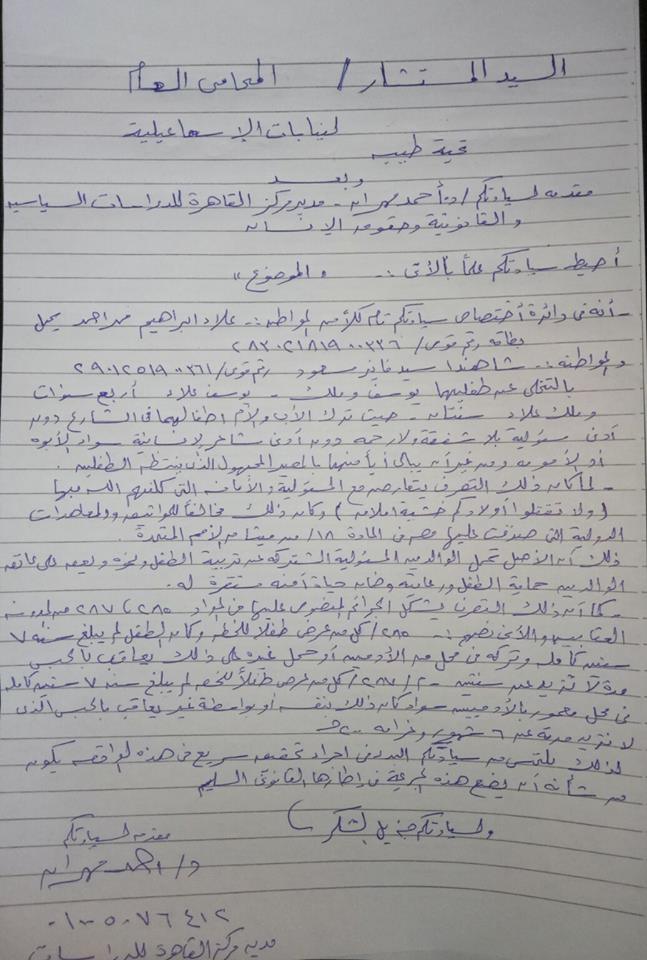 السيد المستشار / المحامى العام
لنيابات الإسماعيلية
تحية طيبه
وبعد
مقدمه لسيادتكم / د/ أحمد مهران - مدير مركز القاهرة للدراسات السياسيه
والقانونية وحقوق الإنسان
أحيط سيادتكم علماً بالأتى :- " الموضوع "
- أنه فى دائرة أختصاص سيادتكم قام كلاً من المواطن :- علاء ابراهيم محمد احمد يحمل
بطاقه رقم قومى / ٢٨٣٠٢١٨١٩٠٠٣٣٦
والمواطنة :- شاهندا سيد فايز مسعود رقم قومى / ٢٩٠١٢٥١٩٠٠٣٦١
بالتخلى عن طفليهما يوسف وملك - يوسف علاء أربع سنوات
وملك علاء سنتان - حيث ترك الأب والأم اطفالهما فى الشارع دون
أدنى مسؤلية بلا شفقة ولا رحمه دون أدنى مشاعر إنسانية سواء الأبوه
أو الأمومه ومن غير أن يبالى أياً منهما بالمصير المجهول الذى ينتظر الطفلين .
- لما كان ذلك التصرف يتعارض مع المسئولية والأمانه التى كلفهم الله بها
( ولا تقتلوا أولادكم خشية إملاق ) وكان ذلك مخالفاً للمواثيق والمعاهدات
الدولية التى صدقت عليها مصر فى المادة ١٨ / من ميثاق الأمم المتحدة .
ذلك أن الأصل تحمل الوالدين المسئولية المشتركه عن تربية الطفل ونموه ويقع على عاتق
الوالدين حماية الطفل ورعايته وضمان حياة آمنه مستقرة له .
- كما أن ذلك التصرف يشكل الجرائم المنصوص عليها فى المواد ٢٨٥ ، ٢٨٧ من
العقابيه والأتى نصهم :- ٢٨٥ / كل من عرض طفلاً للخطر وكان الطفل لم يبلغ سنه ٧
سنين كامله وتركه فى محل من الأدميين أو حمل غيره على ذلك يعاقب بالحبس
مدة لا تزيد عن سنتين - ٢ - ٢٨٧ / كل من عرض طفلاً للخطر لم يبلغ سنه ٧ سنين كامله
فى محل معمور بالأدميين سواء كان ذلك بنفسه أو بواسطة غيره يعاقب بالحبس الذى
لا تزيد مدته عن ٦ شهور وغرامه
لذلك نلتمس من سيادتكم البدء فى اجراء تحقيق سريع فى هذه الواقعه يكون
من شأنه أن يضع هذه الجريمة فى إطارها القانونى السليم
ولسيادتكم جزيل الشكر
مقدمه لسيادتكم
د / احمد مهران
٠١٠٠٥٠٧٦٤١٢
مدير مركز القاهرة للدراسات